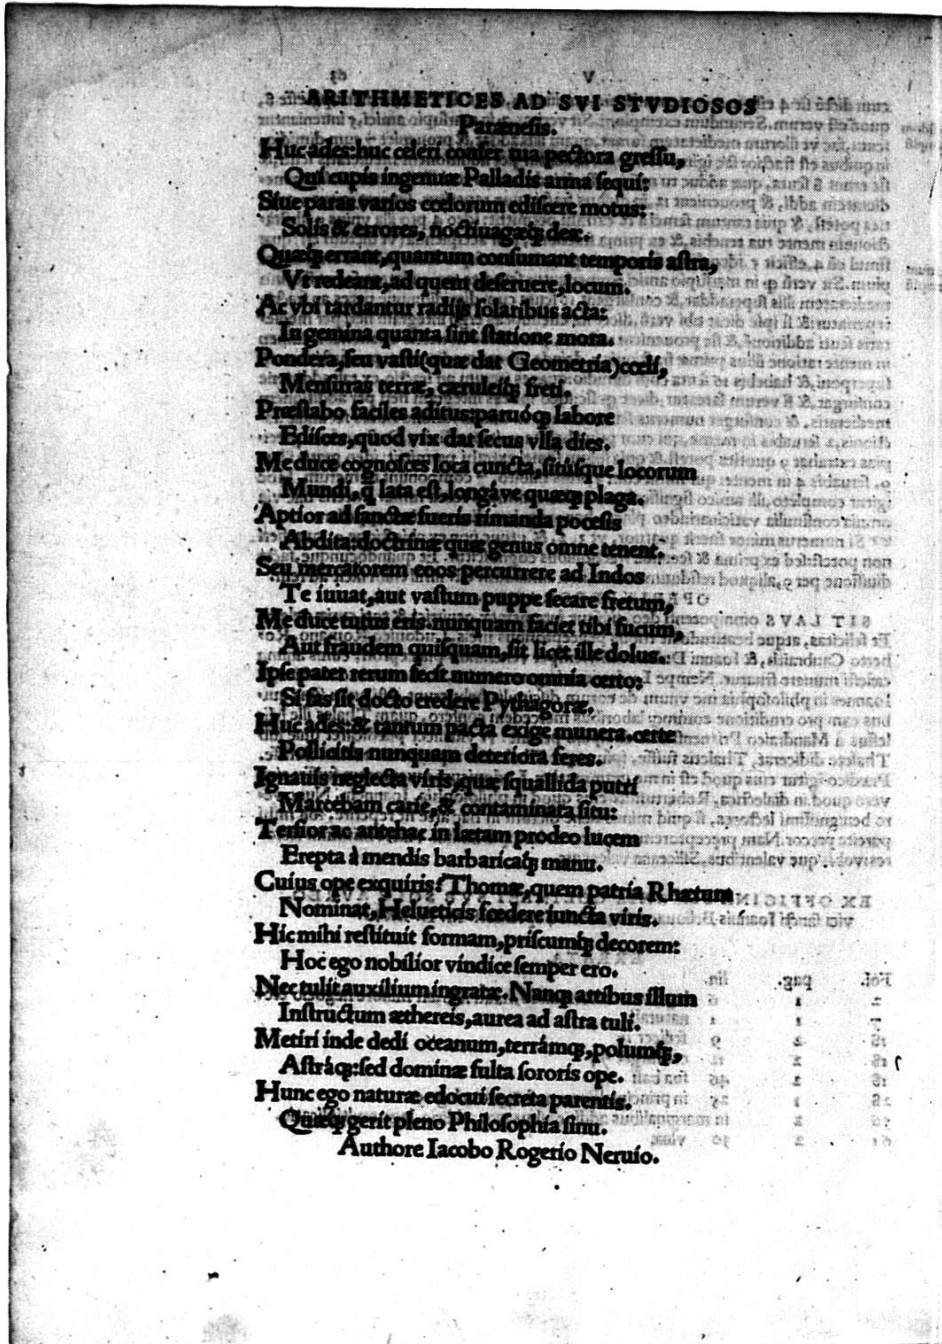 ARITHMETICES AD SVI STVDIOSOS
Parænesis.
Huc ades: huc celeri confer tua pectora gressu,
Qui cupis ingenuæ Palladis arma sequi:
Siue paras varios cœlorum ediscere motus:
Solis & errores, noctiuagæq; deæ.
Quæq; errant, quantum consumant temporis astra,
Vt redeant, ad quem deseruere, locum.
Ac vbi tardantur radijs solaribus acta:
In gemina quanta sint statione mora.
Pondera, seu vasti (quæ dat Geometria) cœli,
Mensuras terræ, cæruleiq; freti.
Præstabo faciles aditus: paruóq; labore
Edisces, quod vix dat secus vlla dies.
Me duce cognosces loca cuncta, sitúsque locorum
Mundi, q̃ lata est, longáve quæq; plaga.
Aptior ad sanctæ fueris rimanda poesis
Abdita: doctrinæ quæ genus omne tenent.
Seu mercatorem eoos percurrere ad Indos
Te iuuat, aut vastum puppe secare fretum,
Me duce tutus eris. nunquam faciet tibi fucum,
Aut fraudem quisquam, sit licet ille dolus.
Ipse pater rerum fecit numero omnia certo:
Si fas sit docto credere Pythagoræ.
Huc ades: & tantum pacta exige munera. certe
Pollicitis nunquam deteriora feres.
Ignauis neglecta viris, quæ squallida putri
Marcebam carie, & contaminata situ:
Tersior ac antehac in lætam prodeo lucem
Erepta à mendis barbaricaq; manu.
Cuius ope exquiris? Thomæ, quem patria Rhætum
Nominat, Helueticis fœdere iuncta viris.
Hic mihi restituit formam, priscumq; decorem:
Hoc ego nobilior vindice semper ero.
Nec tulit auxilium ingratæ. Nanq; artibus illum
Instructum æthereis, aurea ad astra tuli.
Metiri inde dedi oceanum, terrámq;, polumq;,
Astráq;: sed dominæ fulta sororis ope.
Hunc ego naturæ edocui secreta parentis.
Quæq; gerit pleno Philosophia sinu.
Authore Iacobo Rogerio Neruio.